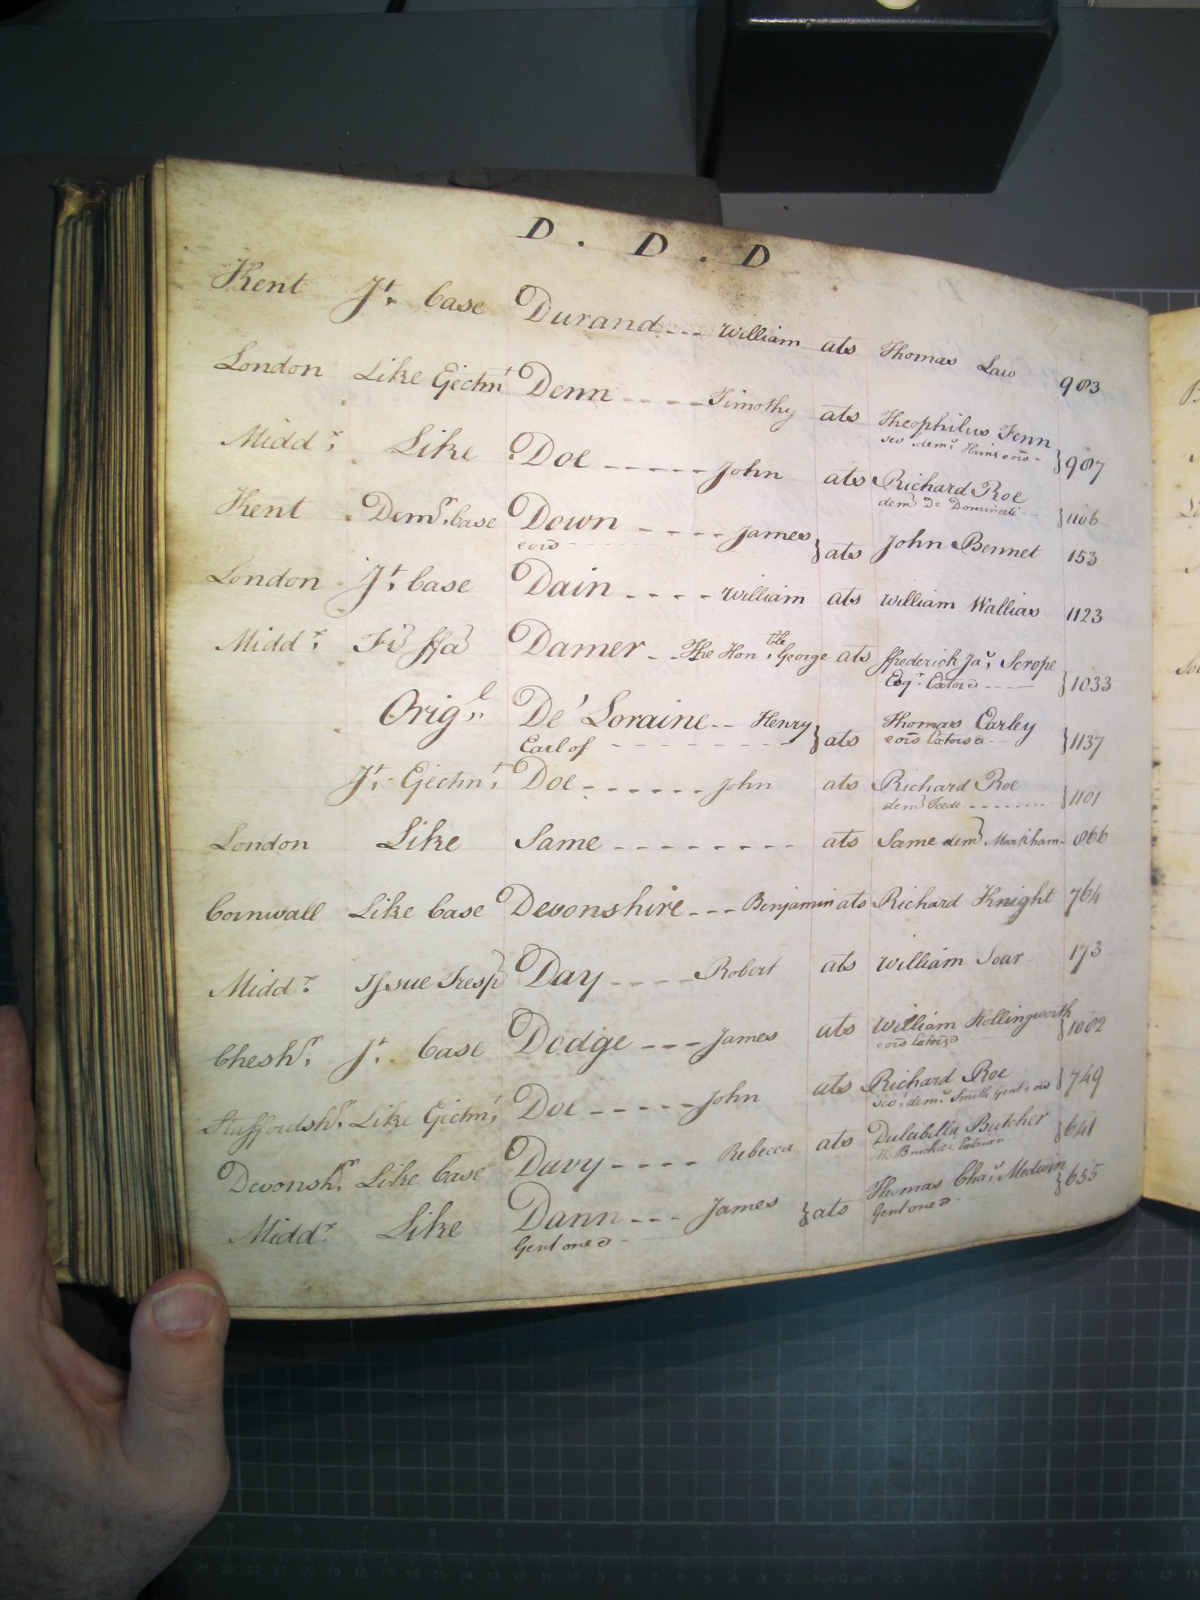 D . D . D
Kent Jt. Case Durand --- William ats Thomas Law 983
London Like Ejectmt Denn ---- Timothy ats Theophilus Fenn
sev. demr. Hains eois - } 987
Middr. Like Doe ----- John ats Richard Roe
demr De - } 1106
Kent Demr. Case Down ---- James } ats John Bennet 153
eois
London Jt. Case Dain ---- William ats William Wallias 1123
Middr. Fi ffa Damer - The Honble. George ats ffrederick Jas. Scrope
Esqr. Extors ---- } 1033
Origl. De'Loraine -- Henry } ats Thomas Carley
Earl of ------- eois } 1137
Jt. Ejectmt. Doe ------ John ats Richard Roe
demr Teede -------- } 1101
London Like Same -------- ats Same demr Markham - 866
Cornwall Like Case Devonshire --- Benjamin ats Richard Knight 764
Middr. Issue Tresp Day ---- Robert ats William Soar 173
Cheshr. Jt. Case Dodge --- James ats William Hollingworth
eois } 1082
Staffordshr. Like Ejectmt. Doe ----- John ats Richard Roe
sev. demr. Smith Gent eois } 749
Devonshr. Like Case Davy ---- Rebecca ats Dulcibella Butcher
} 641
Middr. Like Dann --- James } ats Thomas Chas. Medwin
Gent one &c - Gent one &c } 655